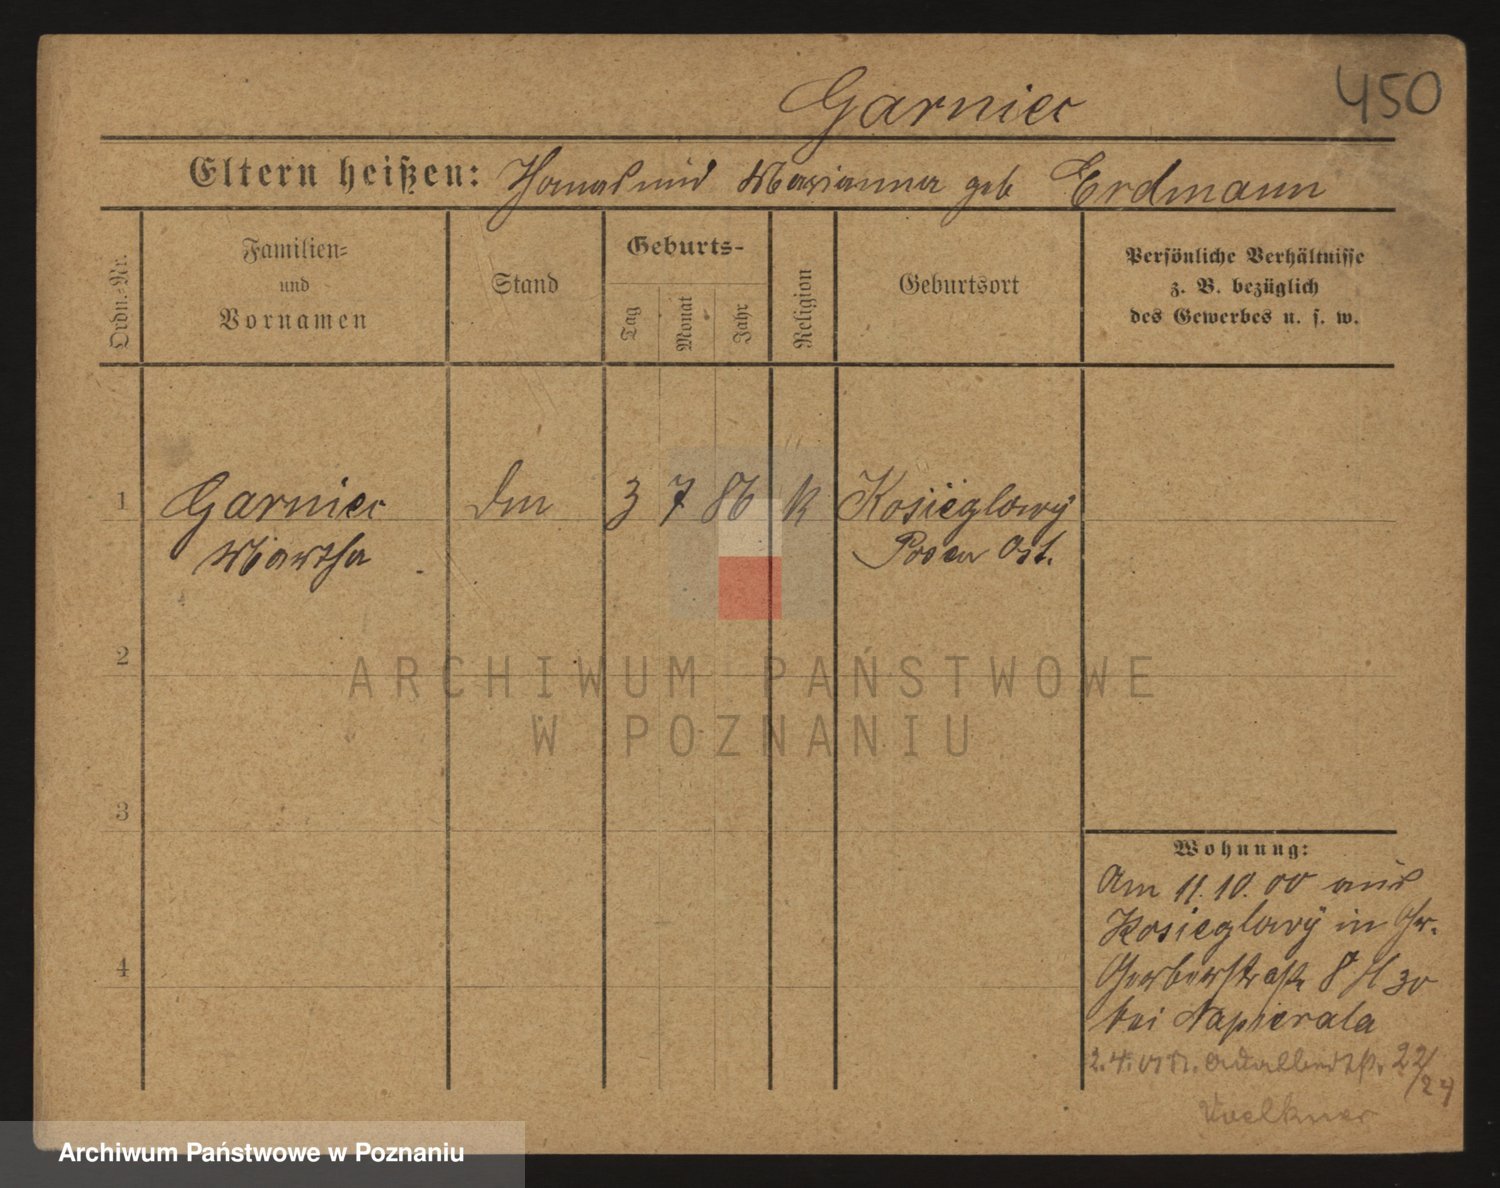 450
Garniec
Eltern heißen: Thomas und Marianna geb Erdmann
Ordn.-Nr.
Familien-
und
Vornamen
Stand
Geburts-
Tag
Monat
Jahr
Religion
Geburtsort
Persönliche Verhältnisse
z. B. bezüglich
des Gewerbes u. s. w.
1 Garniec 3 7 86 k Kosieglowÿ
Martha Posen Ost.
2
ARCHIWUM PAŃSTWOWE
W POZNANIU
3
Wohnung:
Am 11.10.00 aus
Kosieglowÿ in Gr.
4
Gerberstraße 8 H 30
bei Napierala
2.4. 22/24
Voelkner
Archiwum Państwowe w Poznaniu